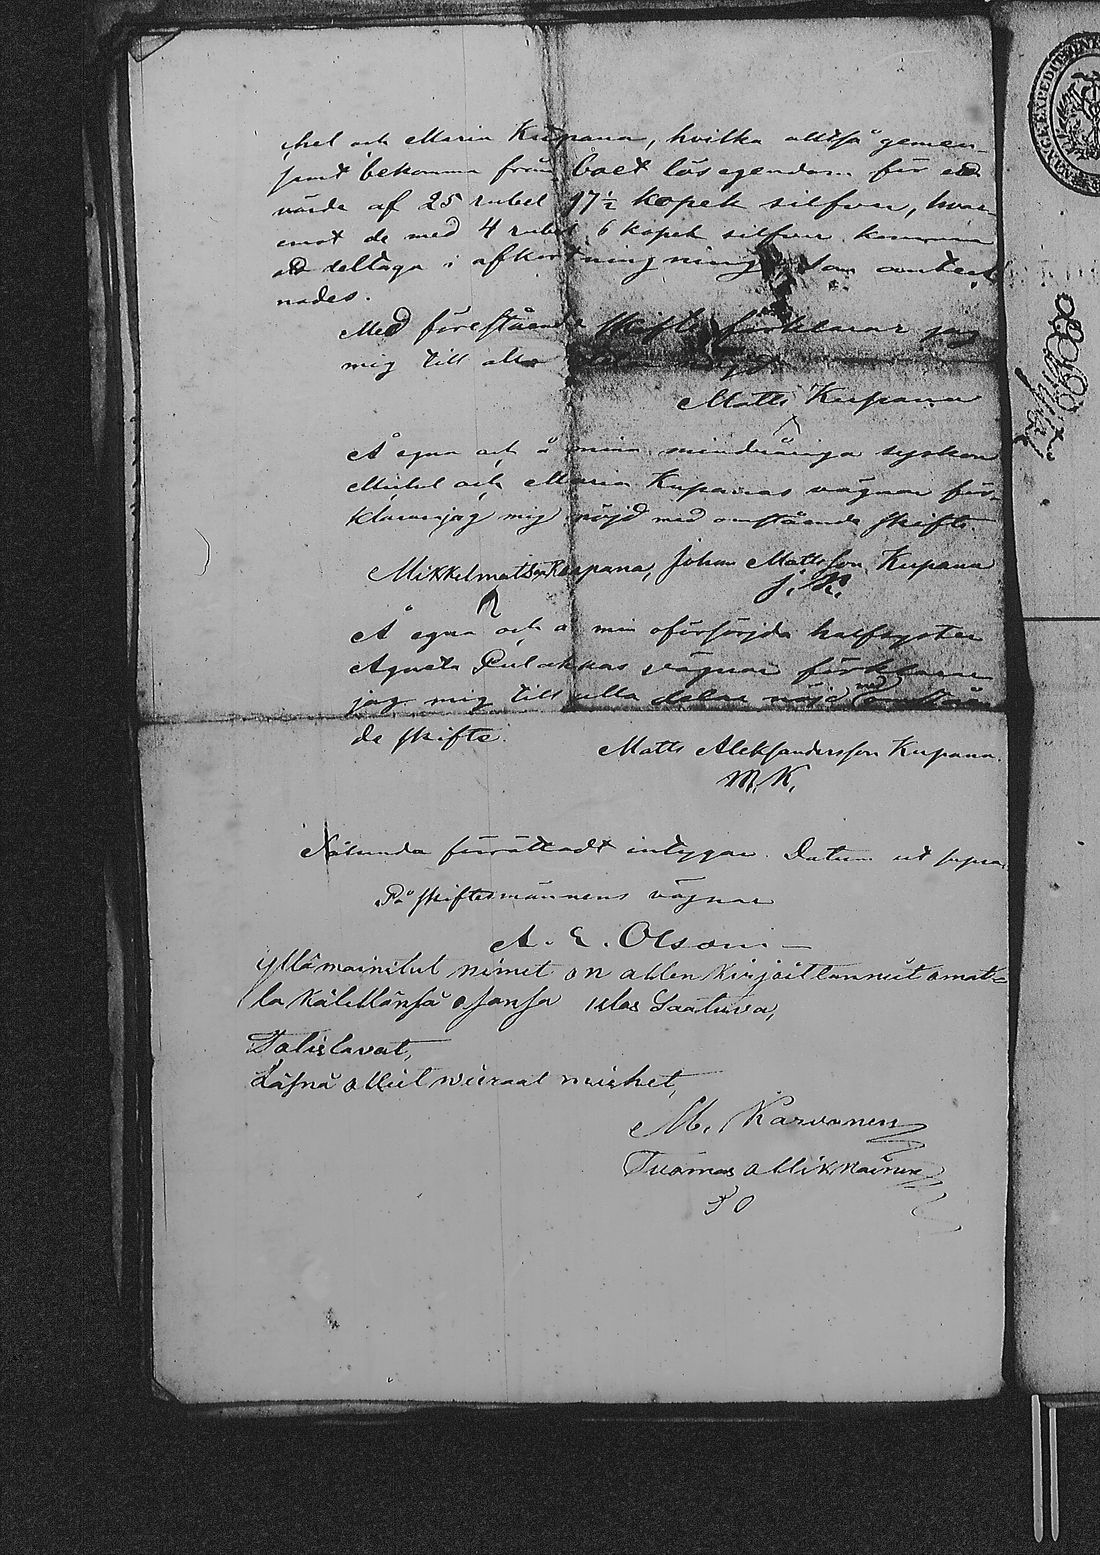 chel och Maria Kupana, hvilka alltså gemen-
samt bekomma från boet lösegendom för ett
värde af 25 rubel 17½ kopek silfver, hvar-
emot de med 4 rubel 6 kopek silfver komma
att deltaga i afkortningning som anteck
nades.
Med förestående skifte förklarar jag
mig till alla delar nöjd
Matts Kupana
Å egna och å mina minderåriga syskon
Michel och Maria Kupanas vägnar för-
klarar jag mig nöjd med omstående skifte.
Mikkel mattson Kupana, Johan Mattsson Kupana
J. K.
Å egna och å min oförsörjda halfsyster
Agneta Pulakkas vägnar förklarar
jag mig till alla delar nöjd med omståen
de skifte.
Matts Aleksandersson Kupana.
M. K.
Sålunda förrättadt intygar. Datum ut supra.
På skiftesmännens vägnar
A. E. Olsoni
yllä mainitut nimet on allen kirjoittanneet omal-
la kädellänsä osansa ulos Saatuva,
Todistavat,
Läsnä ollut vieraat miehet,
M. Karvonen
Tuomas Mikkainen